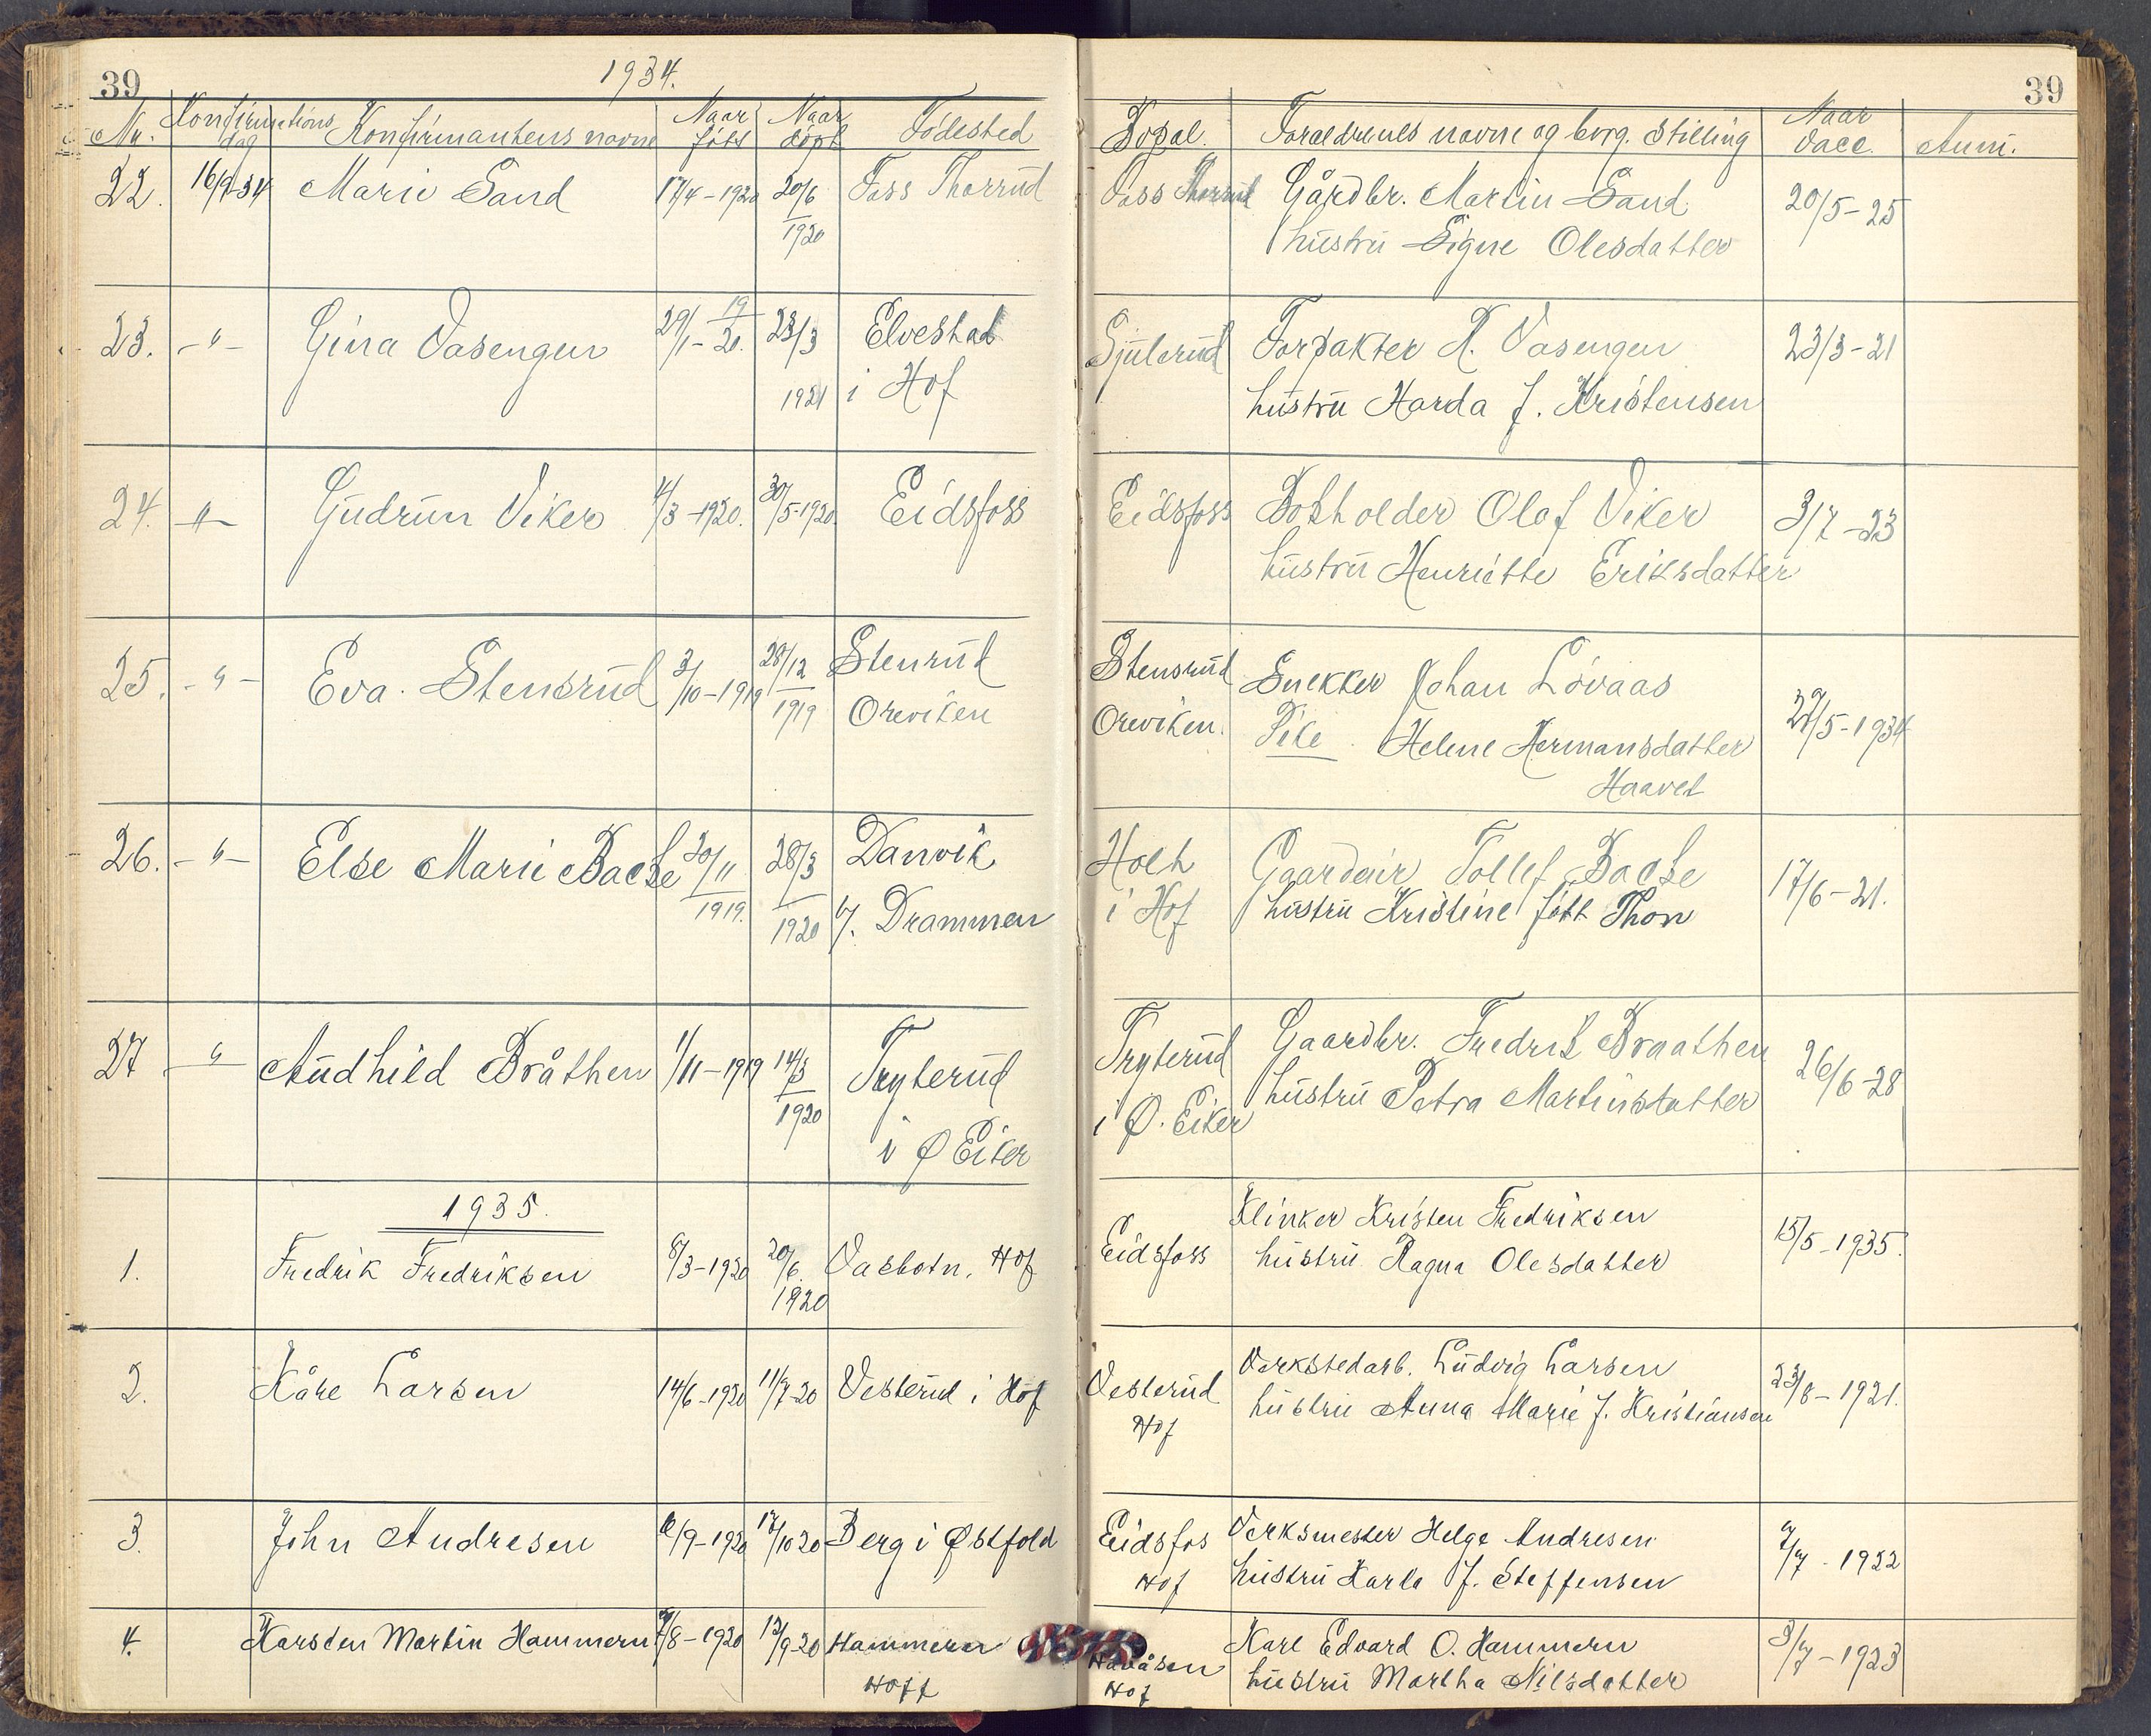 39
1934.
Nu. Konfirmations dag Konfirmantens navne Naar født Naar døpt Fødested
22. 16/9-34 Marie Sand 17/4-1920 20/6 1920 Foss Thorrud
23. -"- Gina Vasengen 29/1-1920. 23/3 1921 Elvestad i Hof
24. -"- Gudrun Viker 4/3-1920. 30/5-1920 Eidsfoss
25. -"- Eva Stensrud 3/10-1919 28/12 1919 Stenrud Oreviken
26. -"- Else Marie Backe 20/11 1919. 28/3 1920 Danvik v/. Drammen
27 -"- Audhild Bråthen 1/11-1919 14/3 1920 Tryterud i Ø Eiker
1935.
1. Fredrik Fredriksen 8/3-1920 20/6. 1920 Vasbotn, Hof
2. Kåre Larsen 14/6-1920 11/7-20 Vesterud i Hof
3. John Andresen /9-1920 17/10 20 Berg i Østfold
4. Karsten Martin Hammern /8-1920 12/9-20 Hammeren Hoff
39
Bopæl. Foræeldrenes navne og borg. Stilling Naar vacc. Anm.
Foss Thorrud Gårdbr. Martin Sand
hustru Signe Olesdatter 20/5-25
Sjulerud Forpakter K. Vasengen
hustru Harda f. Kristensen 23/3-21
Eidsfoss Bokholder Olaf Viker
hustru Henriette Eriksdatter 3/7-23
Stensrud Oreviken. Snekker Johan Løvaas
Pike Helene Hermansdatter
Haavet /5-1934
Holt i Hof Gaardeier Tollef Backe
hustru Kristine født Thon 17/6-21.
Tryterud i Ø. Eiker Gaardbr. Fredrik Braathen
hustru Petra Martinsdatter 26/6-28
Eidsfoss Klinker Kristen Fredriksen
hustru Ragna Olesdatter 15/5-1935.
Vesterud Hof Verkstedarb. Ludvig Larsen
hustru Anna Marie f. Kristiansen 23/8-1921.
Eidsfos Hof Verksmester Helge Andresen
hustru Karla f. Steffensen /7-1922
Havåsen Hof Karl Edvard O. Hammern
hustru Martha Nilsdatter 3/7-1923